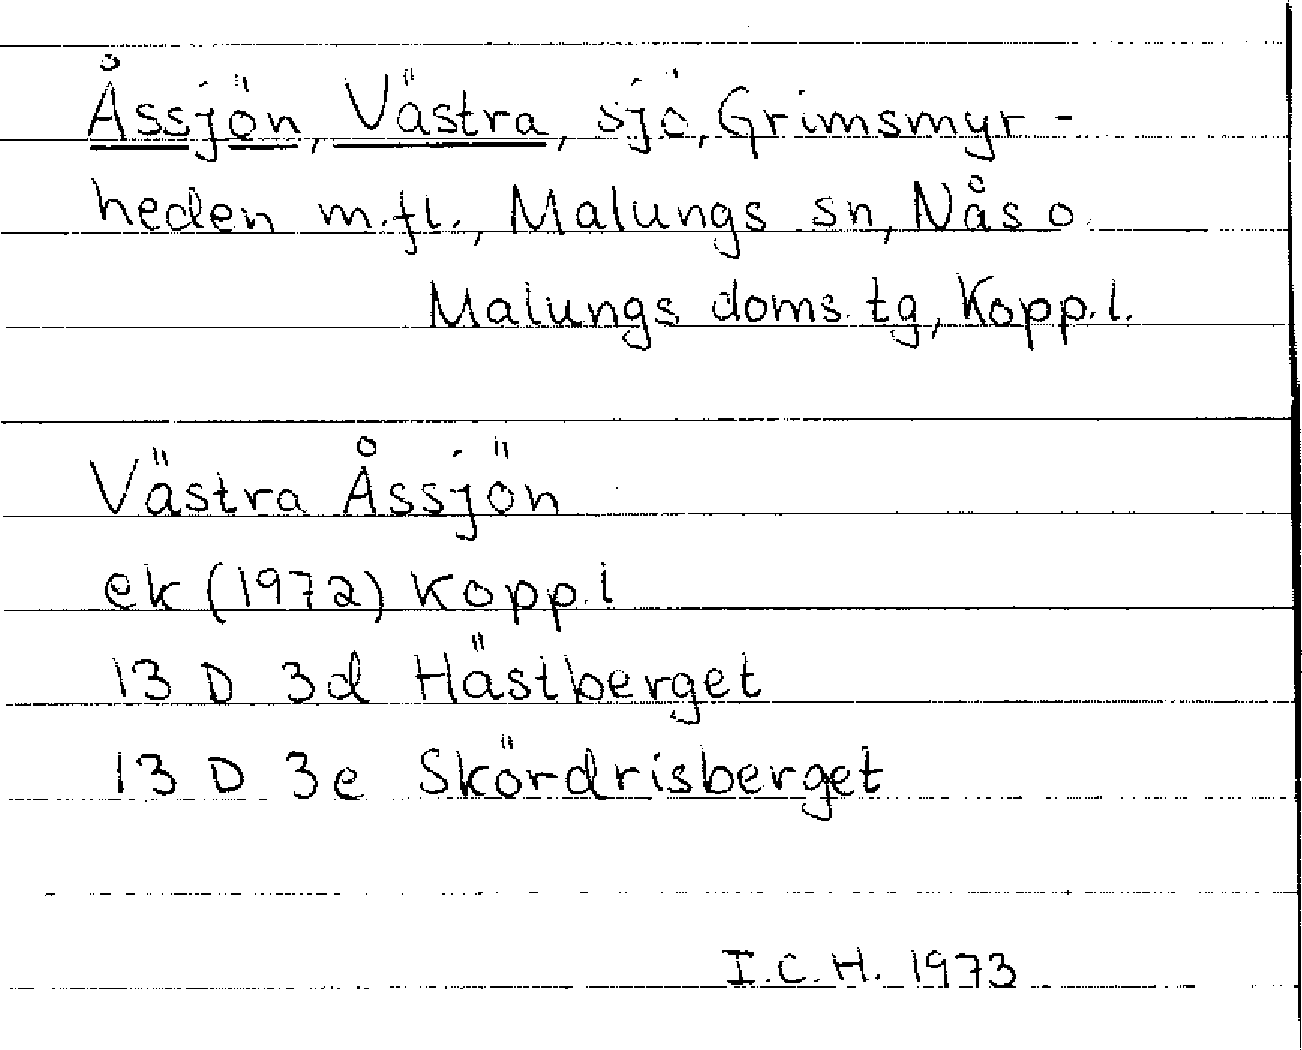 Åssjön, Västra, sjö, Grimsmyr-
heden m.fl., Malungs sn, Nås o.
Malungs doms. tg, Kopp.l.
Västra Åssjön
ek (1972) Kopp.l
13 D 3d Hästberget
13 D 3e Skördrisberget
I.C.H. 1973